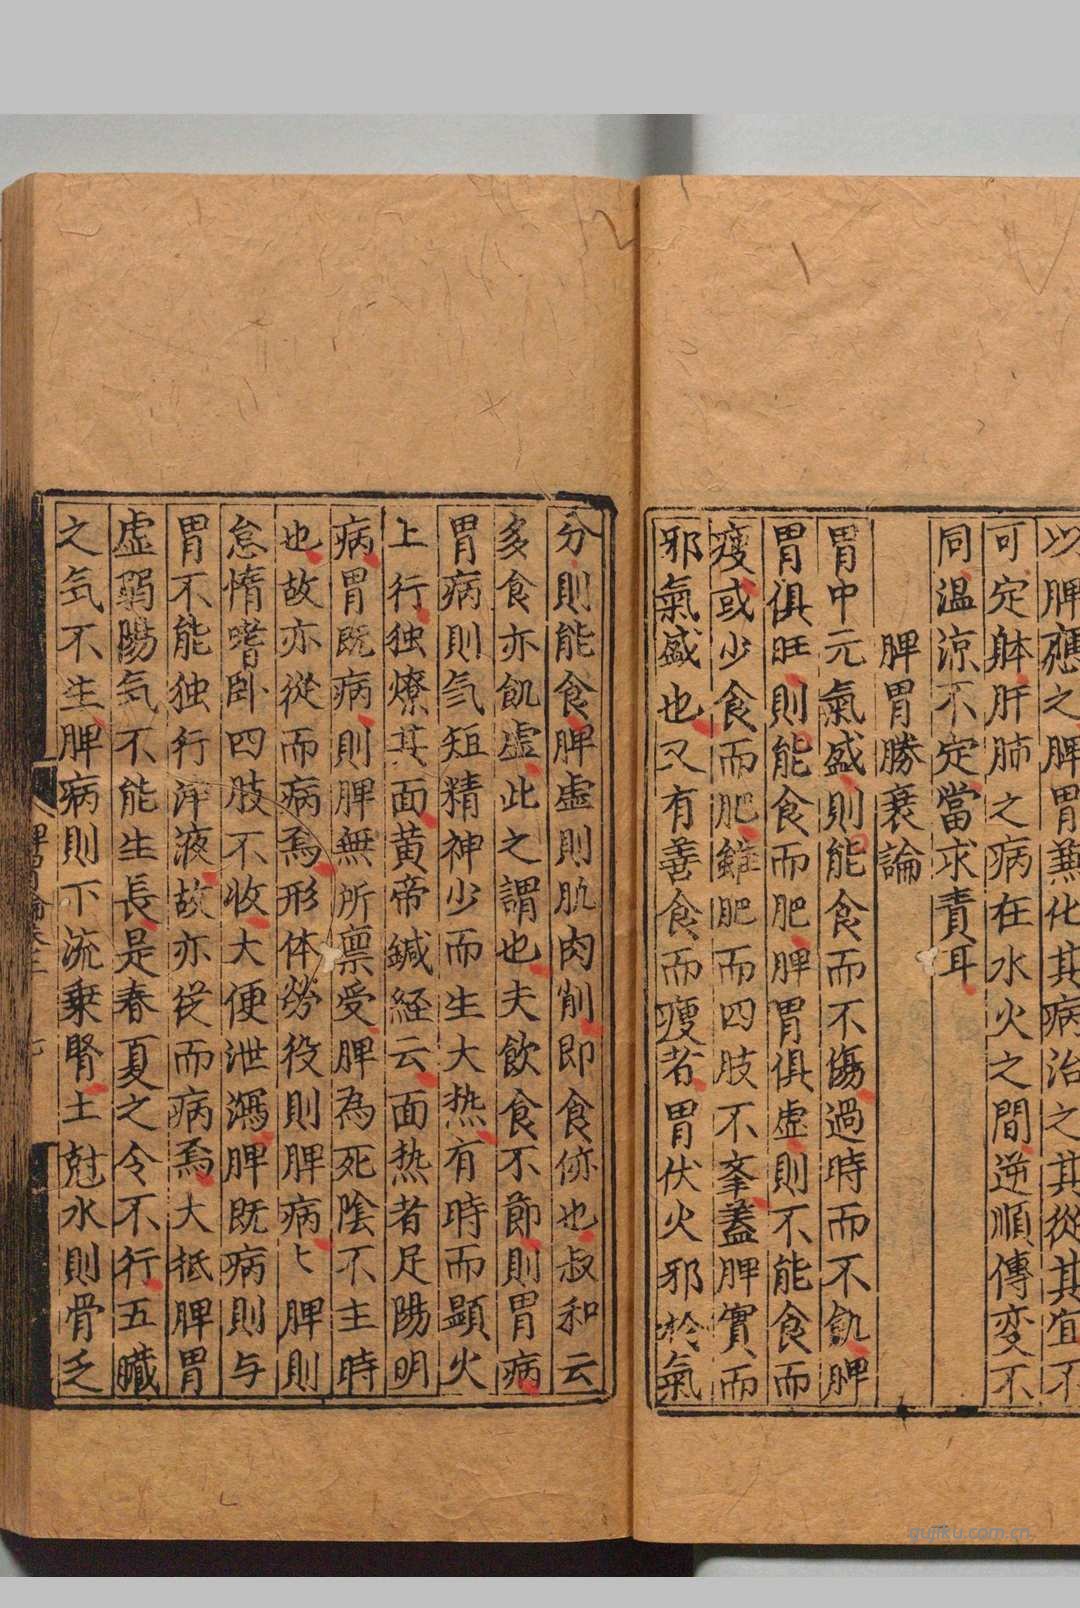 以脾應之脾胃兼化其病治之其從其宜不
可定躰肝肺之病在水火之間逆順傳变不
同温凉不定當求責耳
脾胃勝衰論
胃中元氣盛則能食而不傷過時而不飢脾
胃俱旺則能食而肥脾胃俱虚則不能食而
瘦或少食而肥雖肥而四肢不夆蓋脾實而
邪氣盛也又有善食而瘦者胃伏火邪於氣
分則能食脾虚則肌肉削即食㑊也叔和云
多食亦飢虚此之謂也夫飲食不節則胃病
胃病則氣短精神少而生大热有時而顯火
上行独燎其面黄帝鍼経云面热者足陽明
病胃既病則脾無所禀受脾為死陰不主時
也故亦從而病焉形体勞役則脾病〻脾則
怠惰嗜卧四肢不收大便泄瀉脾既病則与
胃不能独行津液故亦従而病焉大抵脾胃
虚弱陽気不能生長是春夏之令不行五臓
之気不生脾病則下流乗腎土尅水則骨乏
脾胃論卷之三
七
gujiku.com.cn